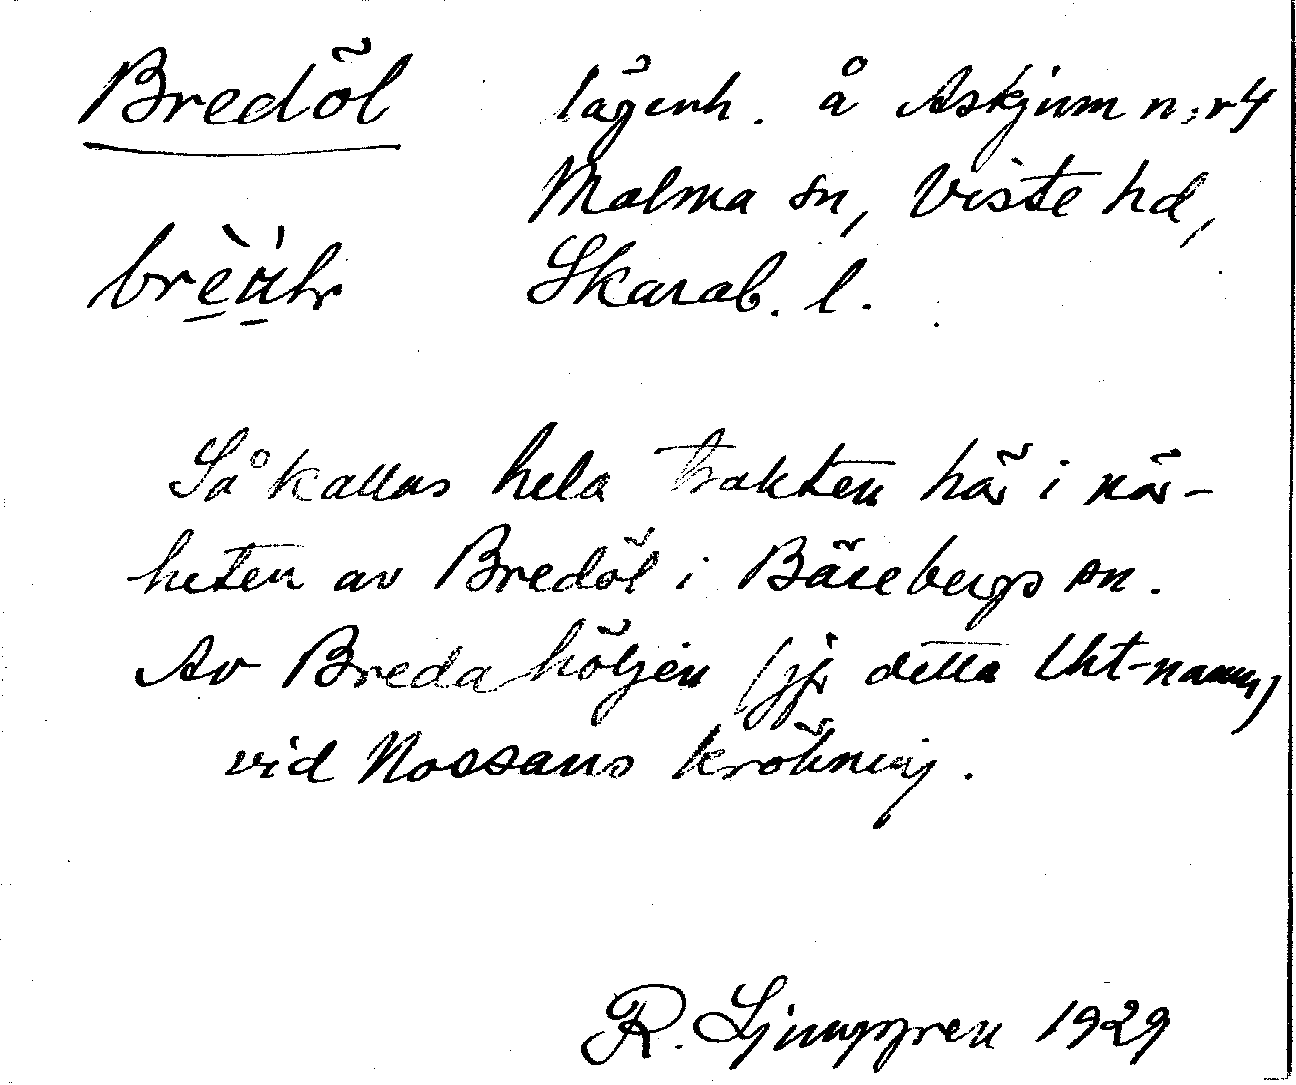 Bredöl lägenh. å Askjum n:r 4
Malma sn, Viste hd,
Skarab. l.
Så kallas hela trakten här i när-
heten av Bredöl i Bärebergs sn.
Av Breda höljen (jfr detta Uht-namn)
vid Nossans krökning.
R. Ljunggren 1929